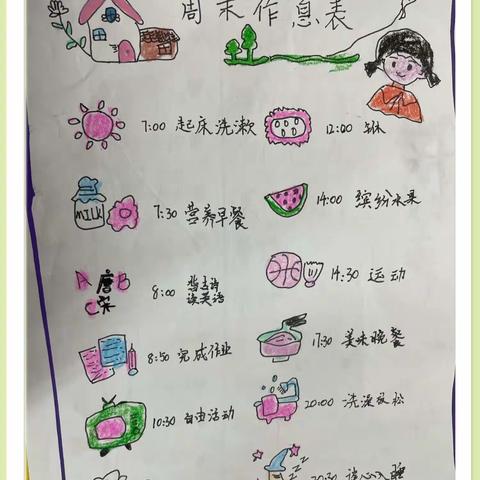 周末作息表
7:00 起床洗漱
12:00 午休
MILK
7:30 营养早餐
14:00 缤纷水果
A 唐 B
C 宋
8:00
读英语
14:30 运动
8:50 完成作业
17:30 美味晚餐
10:30 自由活动
20:00 洗澡放松
20:30 谈心入睡